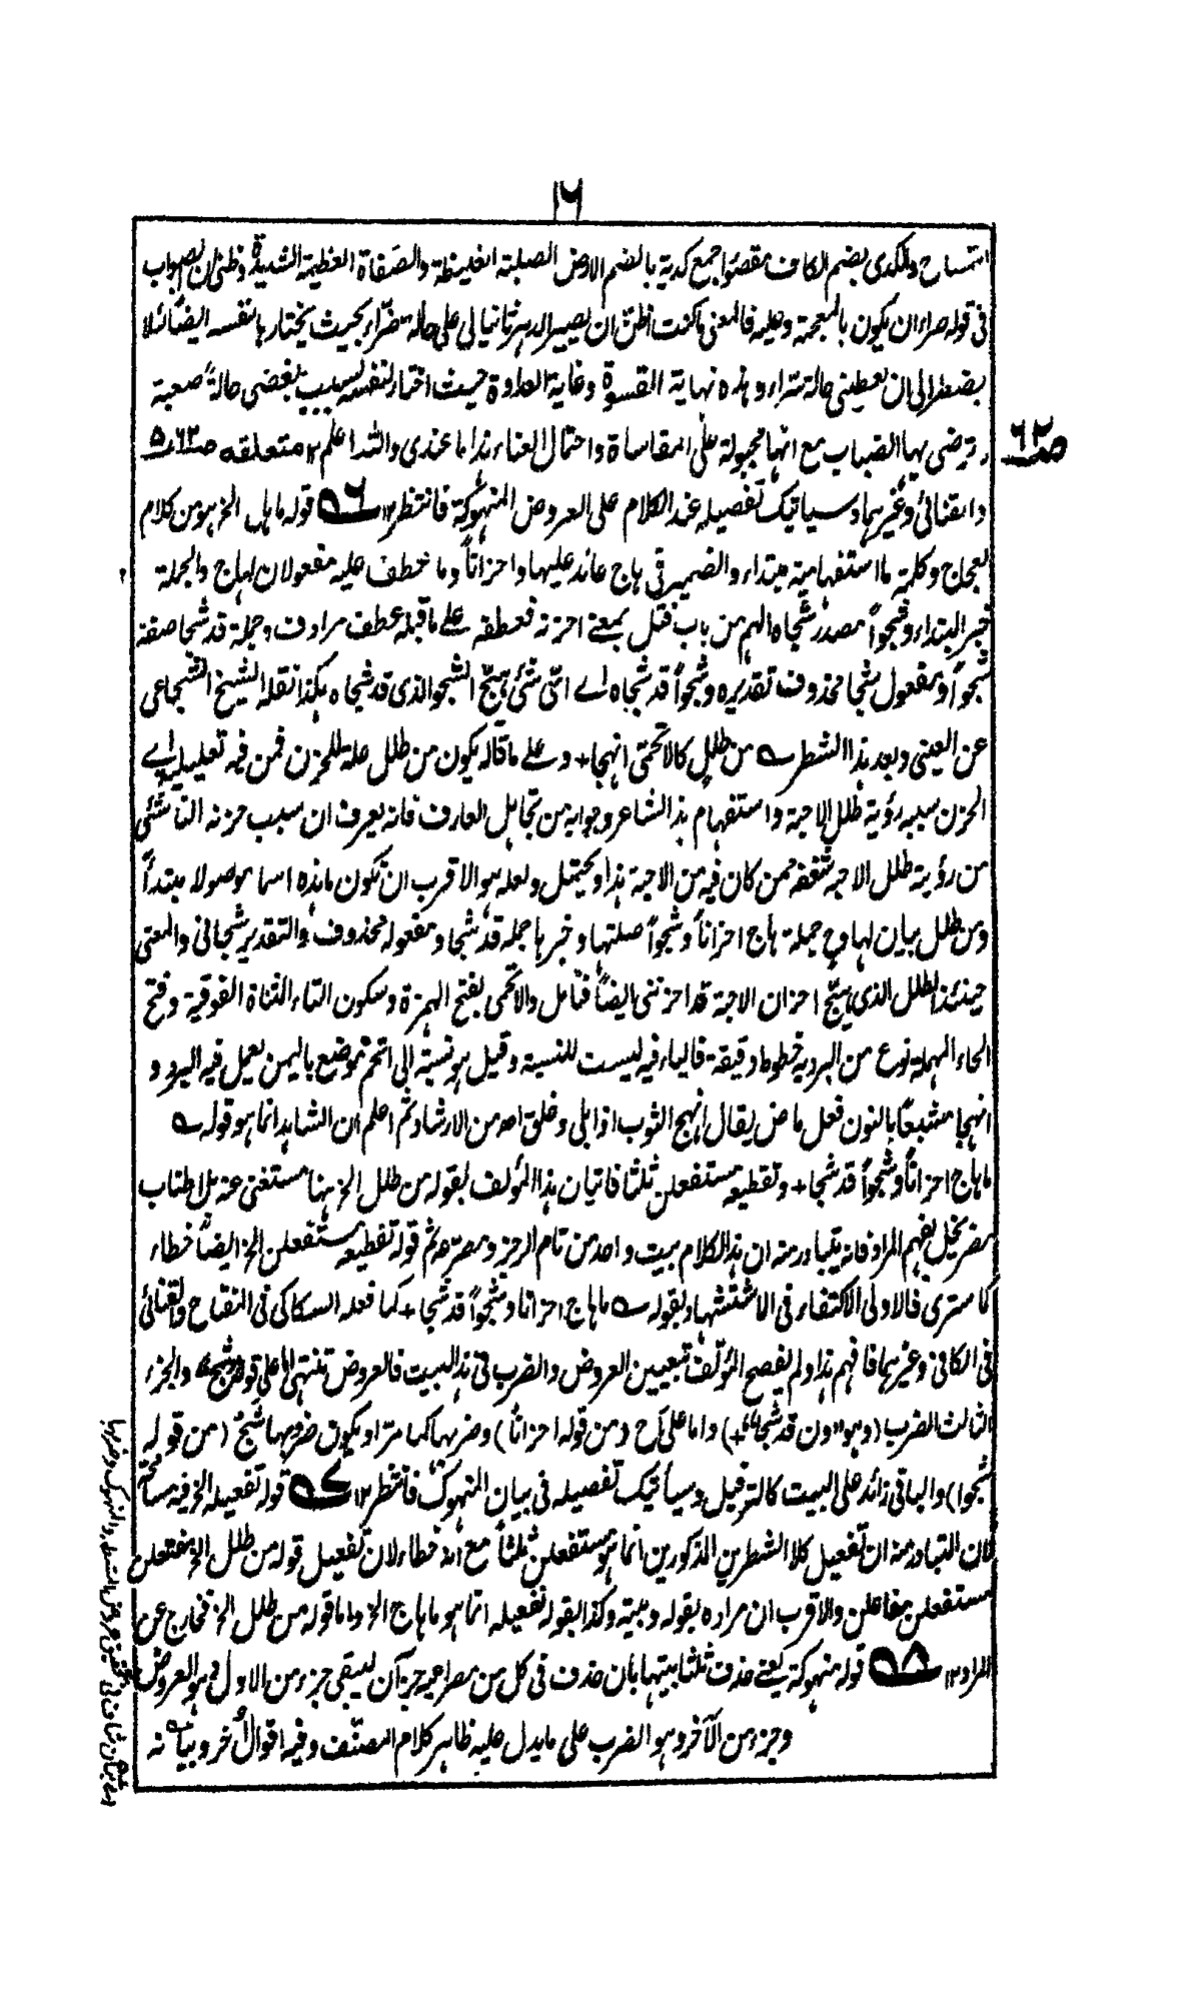 ١٦
التمساح والكدى بضم الكاف مقصورا جمع كدية بالضم الارض الصلبة الغليظة والصفاة العظيمة الشديدة وظنى ان الصواب
فى قوله صراء ان يكون بالمعجمة وعليه فالمعنى ما كنت اظن ان يصير الدهر ثانيا لى على حالة ضراء بحيث يختارها لنفسه ايضا لئلا
يضطر الى ان يعطينى حالة سراء وهذه نهاية القسوة وغاية العداوة حيث اختار لنفسه لسبب بغضى حالة صعبة
ترضى بها الضباب مع انها مجبولة على المقاساة واحتمال العناء هذا ما عندى والله اعلم ١٢ متعلقه صـ٦٣ـه
صـ٦٢
والقنائى وغيرهما وسياتيك تفصيله عند الكلام على العروض المنهوكة فانتظر ١٢ ٥٦ قوله ما هاج الخ هو من كلام
العجاج وكلمة ما استفهامية مبتداء والضمير فى هاج عائد عليها واحزانا وما عطف عليه مفعولان لهاج والجملة
خبر المبتداء وشجوا مصدر شجاه الهم من باب قتل بمعنى احزنه فعطفه على ما قبله عطف مرادف وجملة قد شجا صفة
شجوا ومفعول شجا محذوف تقديره وشجوا قد شجاه اے اىّ شئ هيّج الشجو الذى قد شجاه هكذا نقله الشيخ الشجاعى
عن العينى وبعد هذا الشطر ـه من طلل كالاتحمى انهجا + وعلى ما قاله يكون من طلل علة للحزن فمن فيه تعليلية اے
الحزن سببه رؤية طلل الاحبة واستفهام هذا الشاعر وجوابه من تجاهل العارف فانه يعرف ان سبب حزنه الناشئ
من رؤية طلل الاحبة شغفه بمن كان فيه من الاحبة هذا ويحتمل ولعله هو الاقرب ان تكون ما هذه اسما موصولا مبتدأ
ومن طلل بيان لها وح جملة هاج احزانا وشجوا صلتها وخبرها جملة قد شجا ومفعوله محذوف والتقدير شجانى والمعنى
حينئذ الطلل الذى هيّج احزان الاحبة قد احزننى ايضا فتأمل والاتحمى بفتح الهمزة وسكون التاء المثناة الفوقية وفتح
الحاء المهملة نوع من البرد به خطوط دقيقة فالياء فيه ليست للنسبة وقيل هو نسبة الى اتحم موضع باليمن يعمل فيه البرود و
انهجا مشبعا بالنون فعل ماض يقال انهج الثوب اذا بلى وخلق اھ من الارشاد ثم اعلم ان الشاهد انما هو قوله ـه
ما هاج احزانا وشجوا قد شجا + وتقطيعه مستفعلن ثلثا فاتيان هذا المؤلف بقوله من طلل الخ هنا مستغنى عنه بل اطناب
مضر مخل بفهم المراد فانه يتبادر منه ان هذا الكلام بيت واحد من تام الرجز ومصرعه ثم قوله تقطيعه مستفعلن الخ ايضا خطاء
كما سترى فالاولى الاكتفاء فى الاستشهاد بقوله ـه ما هاج احزانا وشجوا قد شجا + كما فعله السكاكى فى المفتاح والقنائى
فى الكافى وغيرهما فافهم هذا ولم يفصح المؤلف بتعيين العروض والضرب فى هذا البيت فالعروض تنتهى اما على قوله والجزء
الثالث الضرب (وهو "ون قد شجا" +) واما على (من قوله احزانا) وضربها كما مر او يكون ضربها شج (من قوله
شجوا) والباقى زائد على البيت كالترفيل وسيأتيك تفصيله فى بيان المنهوك فانتظر ١٢ ٥٧ قوله تفعيله الخ فيه مسامحة
لان المتبادر منه ان تفعيل كلا الشطرين المذكورين انما هو مستفعلن ثلثا مع انه خطاء لان تفعيل قوله من طلل الخ مفتعلن
مستفعلن مفاعلن والاقرب ان مراده بقوله وبيته وكذا بقوله تفعيله انما هو ما هاج الخ واما قوله من طلل الخ فخارج عن
المراد ١٢ ٥٨ قوله منهوكة يعنى حذف ثلثا بيتها بان حذف فى كل من مصراعيه جزآن ليبقى جزء من الاول هو العروض
وجزء من الآخر وهو الضرب على ما يدل عليه ظاهر كلام المصنف وفيه اقوال أخر وبيانه